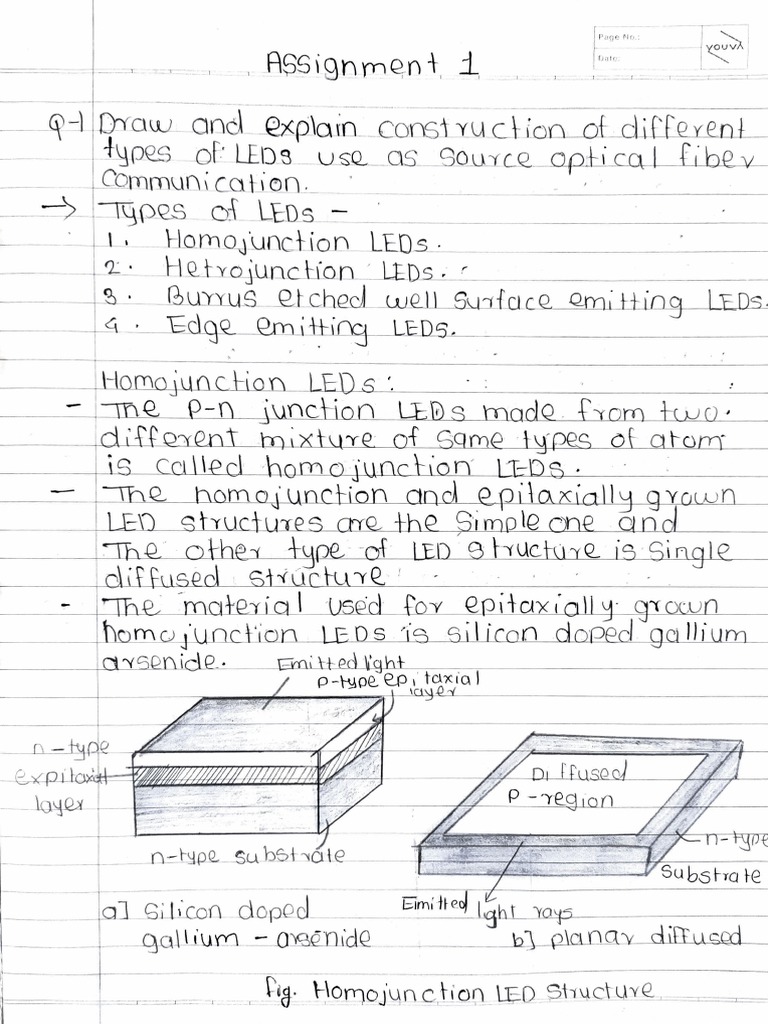 Page No.:
Date:
YOUVA
Assignment 1
Q-1 Draw and explain construction of different
types of LEDs use as source optical fiber
communication.
→ Types of LEDs -
1. Homojunction LEDs.
2. Hetrojunction LEDs.
3. Burrus etched well surface emitting LEDs.
4. Edge emitting LEDs.
Homojunction LEDs:
- The P-n junction LEDs made from two
different mixture of same types of atom
is called homojunction LEDs.
- The homojunction and epitaxially grown
LED structures are the simple one and
The other type of LED structure is single
diffused structure
- The material used for epitaxially grown
homojunction LEDs is silicon doped gallium
arsenide.
Emitted light
P-type epitaxial
layer
n-type
expitaxial
layer
n-type substrate
Diffused
P-region
n-type
substrate
Emitted light rays
a] silicon doped
gallium - arsenide
b] planar diffused
fig. Homojunction LED structure